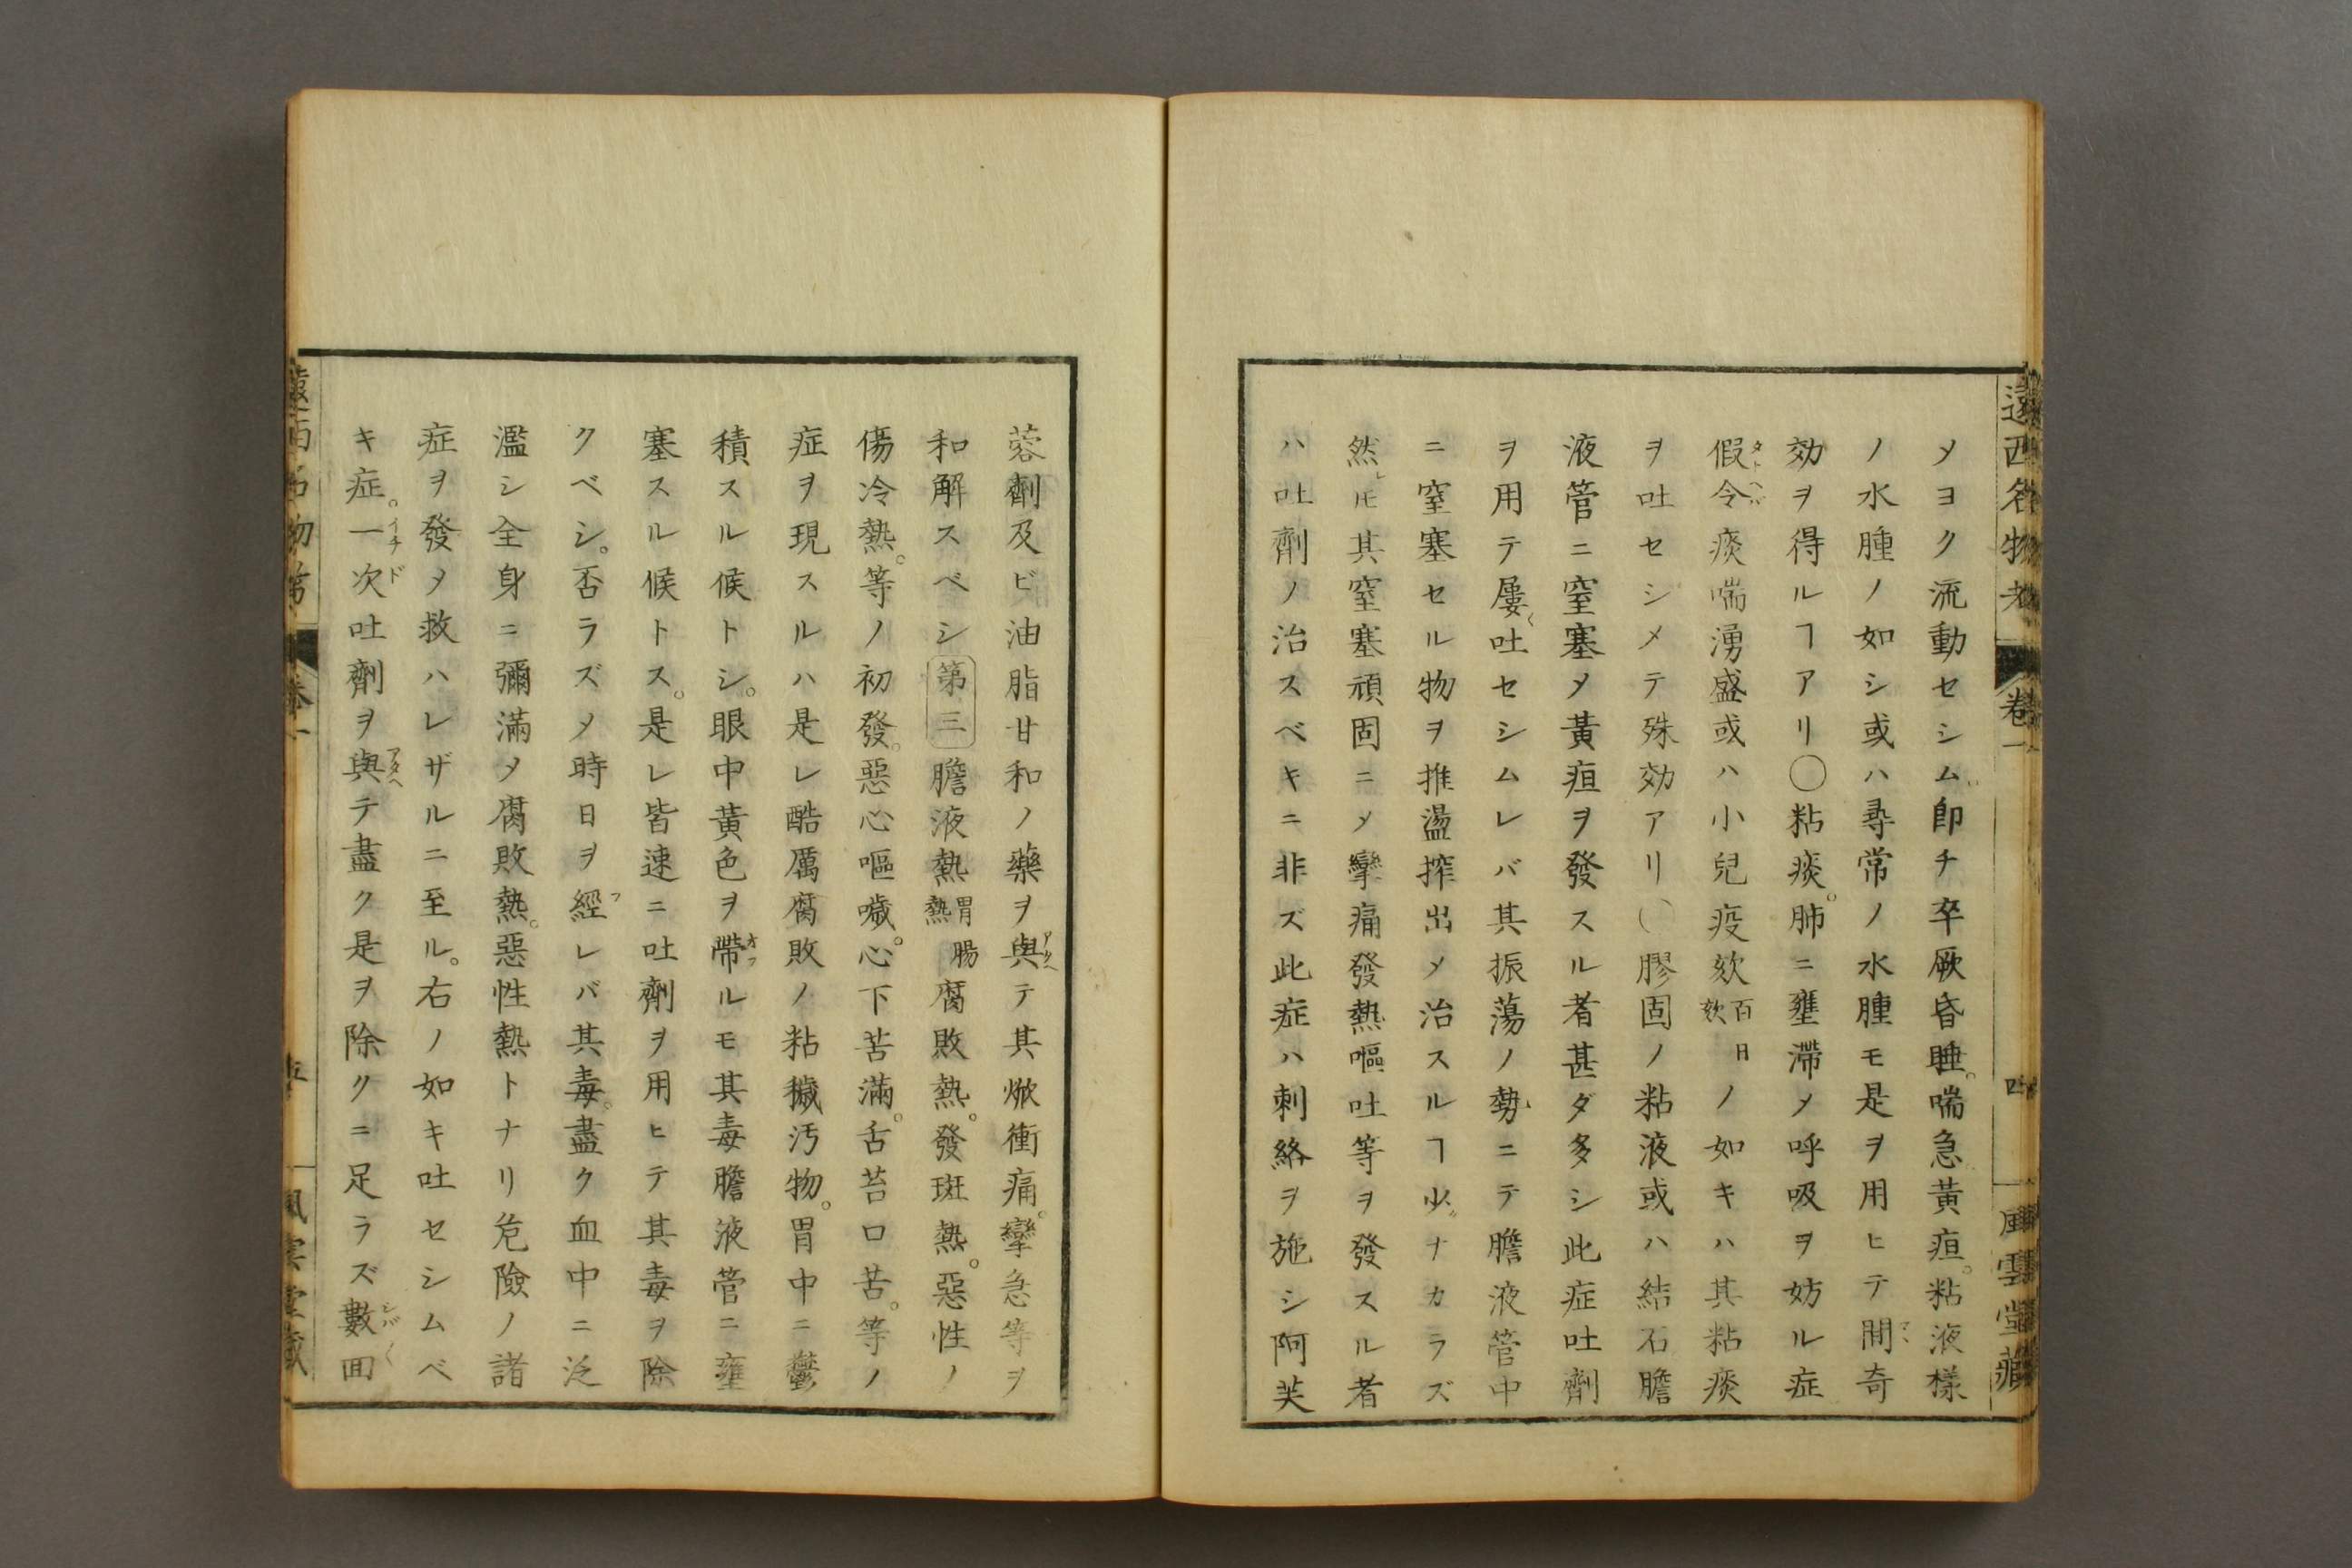 遠西名物考 卷一 四 風雲堂藏
メヨク流動セシム即チ卒厥昏睡。喘急黃疸。粘液樣
ノ水腫ノ如シ或ハ尋常ノ水腫モ是ヲ用ヒテ間奇
効ヲ得ルヿアリ〇粘痰。肺ニ壅滯メ呼吸ヲ妨ル症
假令痰喘湧盛或ハ小兒疫欬百日欬ノ如キハ其粘痰
ヲ吐セシメテ殊効アリ〇膠固ノ粘液或ハ結石膽
液管ニ窒塞メ黃疸ヲ發スル者甚ダ多シ此症吐劑
ヲ用テ屢〱吐セシムレバ其振蕩ノ勢ニテ膽液管中
ニ窒塞セル物ヲ推盪搾出メ治スルヿ少ナカラズ
然レ𪜈其窒塞頑固ニメ攣痛發熱嘔吐等ヲ發スル者
ハ吐劑ノ治スベキニ非ズ此症ハ刺絡ヲ施シ阿芙
蓉劑及ビ油脂甘和ノ藥ヲ與テ其焮衝痛。攣急等ヲ
和解スベシ第三膽液熱胃腸熱腐敗熱。發斑熱。惡性ノ
傷冷熱。等ノ初發。惡心嘔噦。心下苦滿。舌苔口苦。等ノ
症ヲ現スルハ是レ酷厲腐敗ノ粘穢汚物。胃中ニ鬱
積スル候トシ。眼中黃色ヲ帶ルモ其毒膽液管ニ壅
塞スル候トス。是レ皆速ニ吐劑ヲ用ヒテ其毒ヲ除
クベシ。否ラズメ時日ヲ經レバ其毒。盡ク血中ニ泛
濫シ全身ニ彌滿メ腐敗熱。惡性熱トナリ危險ノ諸
症ヲ發メ救ハレザルニ至ル。右ノ如キ吐セシムベ
キ症。一次吐劑ヲ與テ盡ク是ヲ除クニ足ラズ數回
遠西名物考 卷一 五 風雲堂藏